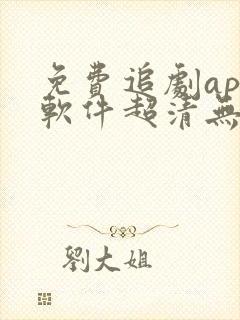 免費追劇ap
軟件超清無
劉大姐